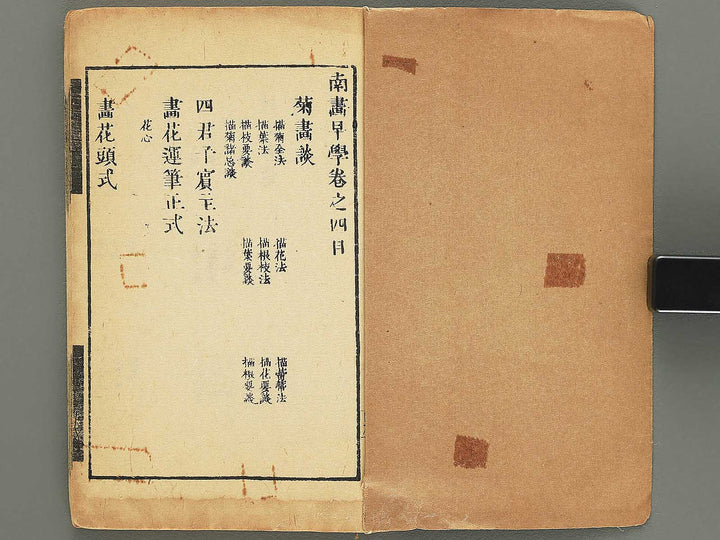 南畫早學卷之四目
菊畫談
描菊全法
描花法
描蕾蔕法
描葉法
描根枝法
描花要訣
描枝要訣
描葉要訣
描根要訣
描菊諸忌訣
四君子賓主法
畫花運筆正式
花心
畫花頭式